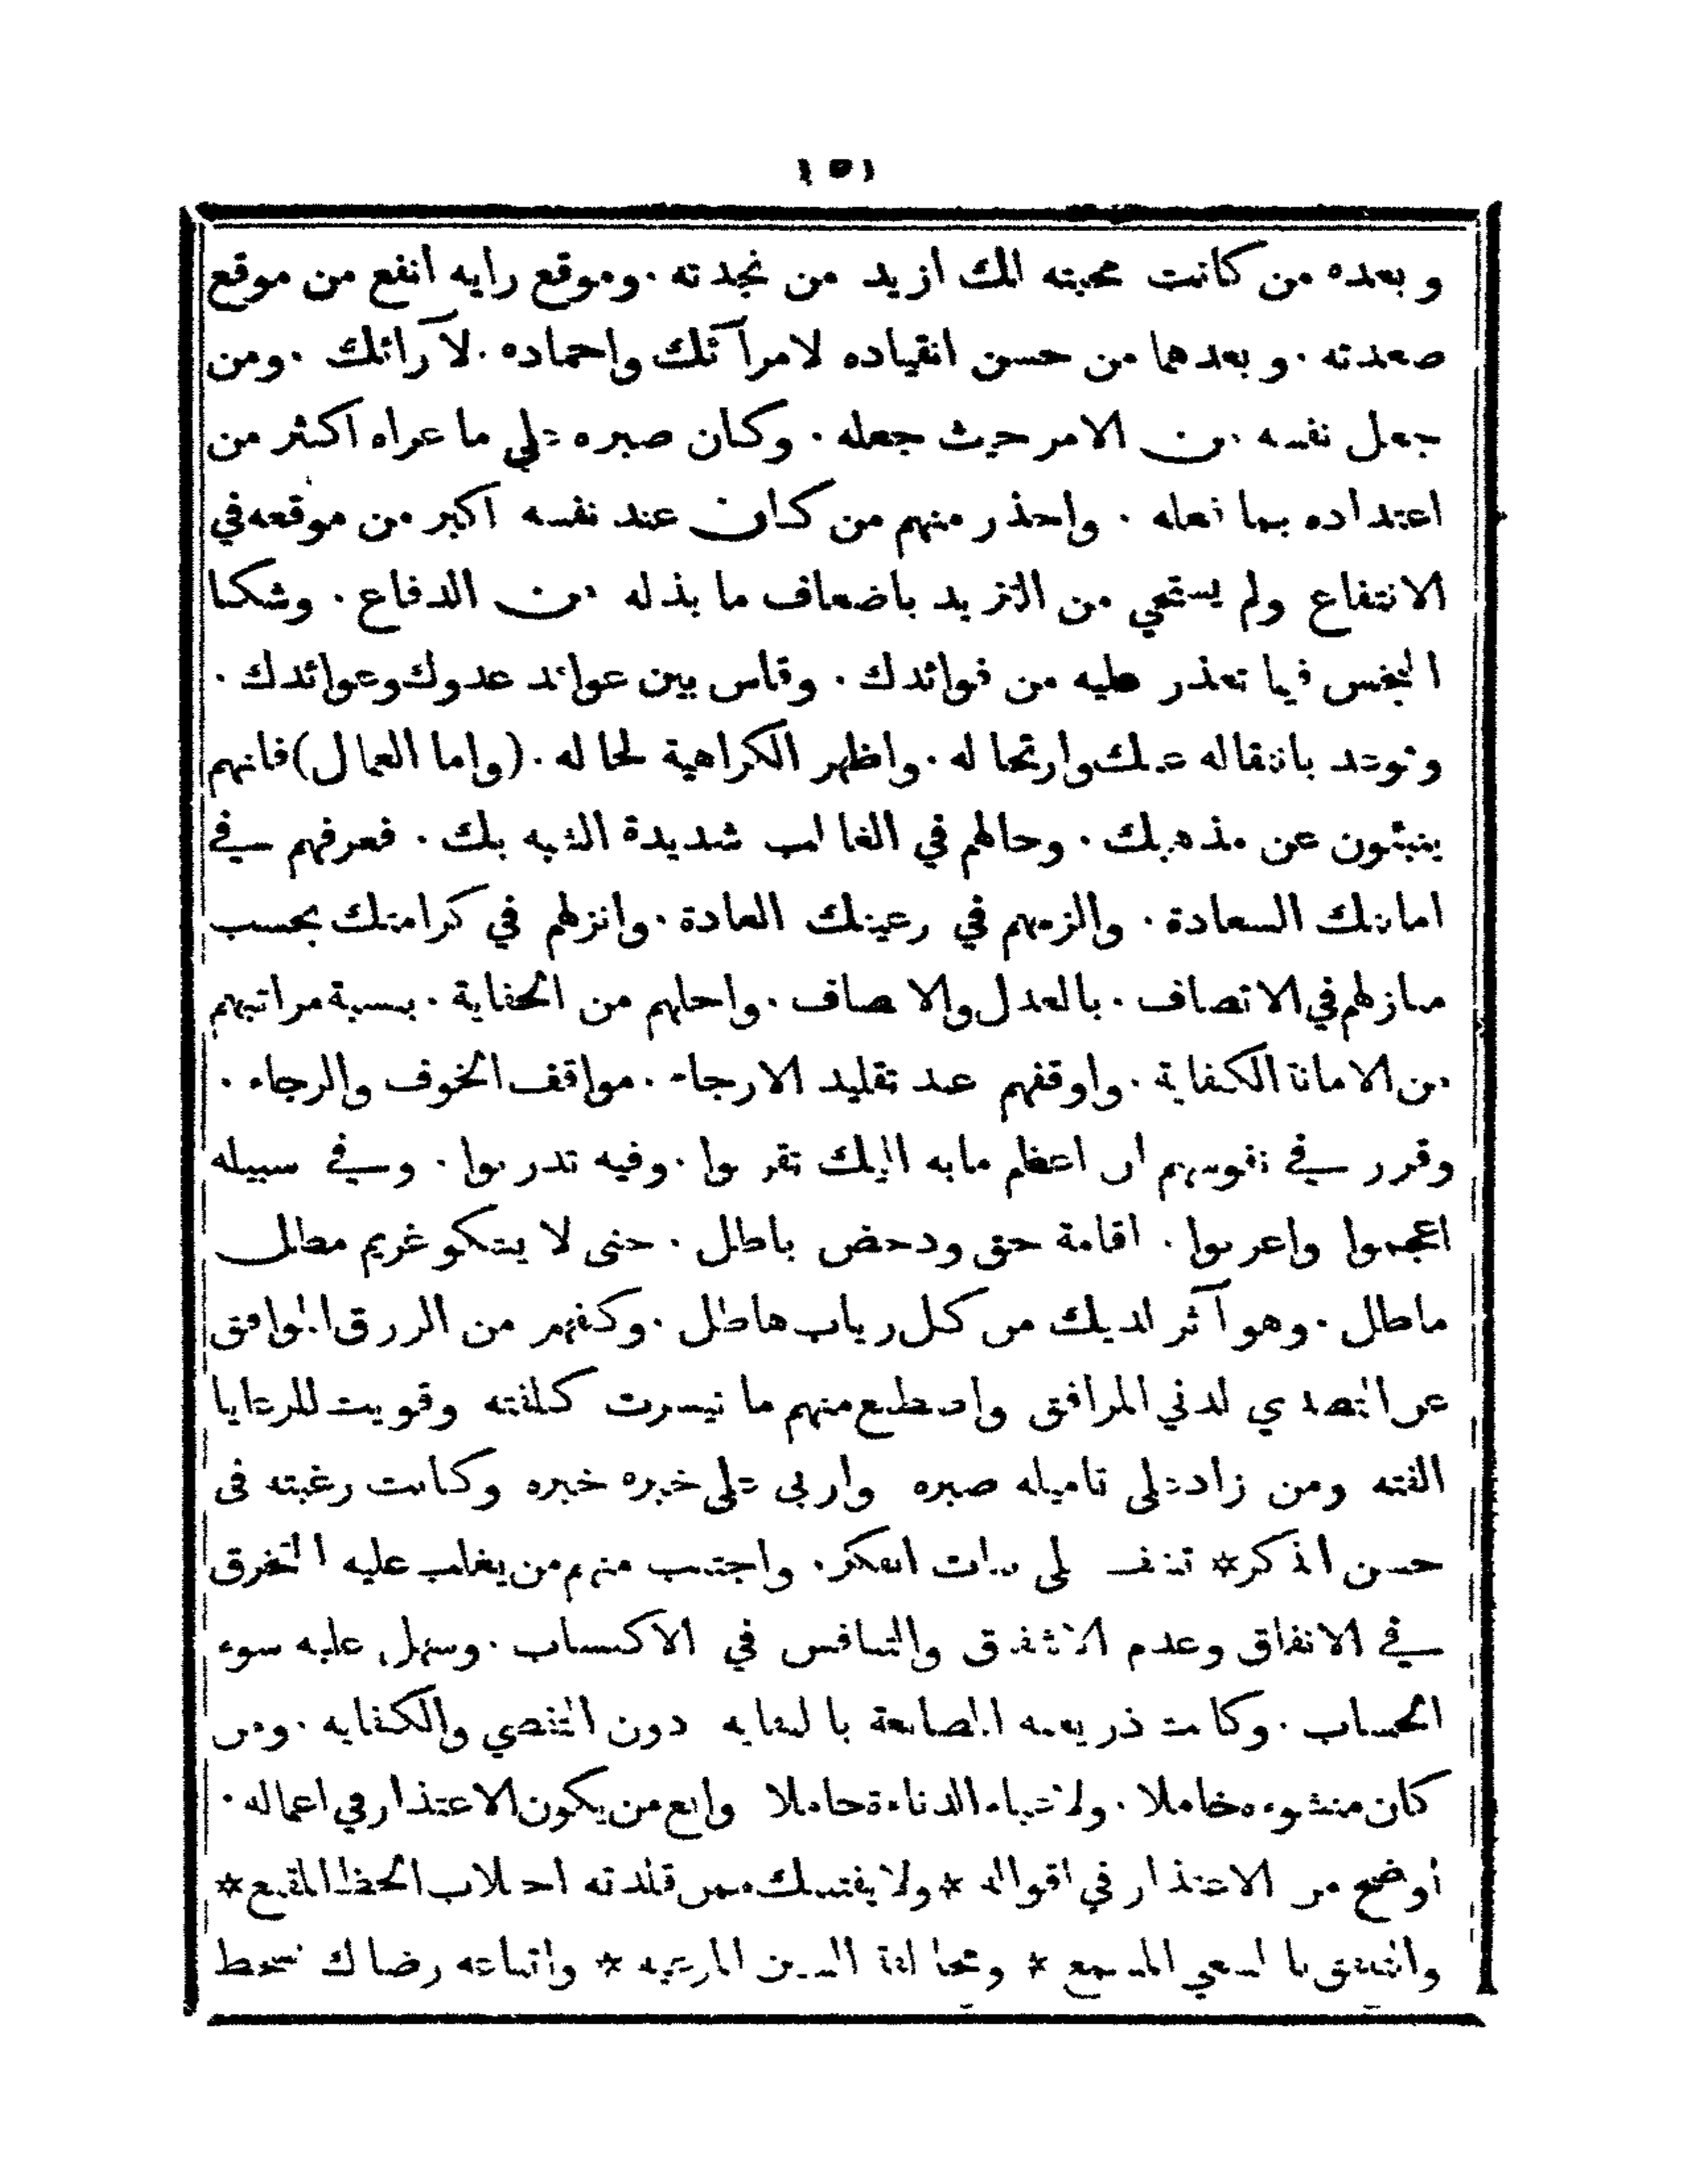 ١٥١
وبعده من كانت محبته لك ازيد من نجدته ٠ وموقع رايه انفع من موقع
صعدته ٠ وبعدهما من حسن انقياده لامرآئك واحماده ٠ لآرائك ٠ ومن
جعل نفسه من الامر حيث جعله ٠ وكان صبره على ما عراه اكثر من
اعتداده بما فعله ٠ واحذر منهم من كان عند نفسه اكبر من موقعه في
الانتفاع ولم يستحي من التزيد باضعاف ما بذله من الدفاع ٠ وشكا
البخس فيما تعذر عليه من فوائدك ٠ وقاس بين عوائد عدوك وعوائدك ٠
وتوعد بانتقاله عنك وارتحاله ٠ واظهر الكراهية لحاله ٠ (واما العمال) فانهم
ينبئون عن مذهبك ٠ وحالهم في الغالب شديدة الشبه بك ٠ فعرفهم في
امانتك السعادة ٠ والزمهم في رعيتك العادة ٠ وانزلهم في كرامتك بحسب
منازلهم في الاتصاف ٠ بالعدل والانصاف ٠ واحلهم من الحفاية ٠ بنسبة مراتبهم
من الامانة الكفاية ٠ واوقفهم عند تقليد الارجاء ٠ مواقف الخوف والرجاء ٠
وقرر في نفوسهم ان اعظم مابه اليك تقربوا ٠ وفيه تدربوا ٠ وفي سبيله
اعجموا واعربوا ٠ اقامة حق ودحض باطل ٠ حتى لا يشكو غريم مطل
ماطل ٠ وهو آثر لديك من كل رباب هاطل ٠ وكفهم من الرزق الموافق
عن التصدي لدني المرافق واصطنع منهم ما تيسرت كلفته وقويت للرعايا
الفته ومن زاد على تاميله صبره واربى على خبره خبره وكانت رغبته في
حسن الذكر * تنف لى بنات الفكر ٠ واجتنب منهم من يغلب عليه التخرق
في الانفاق وعدم الاشفاق والتنافس في الاكتساب ٠ وسهل عليه سوء
الحساب ٠ وكانت ذريعته المصانعة بالنفاية دون التقصي والكفاية ٠ ومن
كان منشوءه خاملا ٠ ولاعباء الدناءة حاملا وابع من يكون الاعتذار في اعماله ٠
أوضح من الاعتذار في اقواله * ولا يفتنك ممن قلدته اجتلاب الحظ المقنع *
والتنفق بالسعي المسمع * ومخالفة السنن المرعيه * واتباعه رضاك بسخط